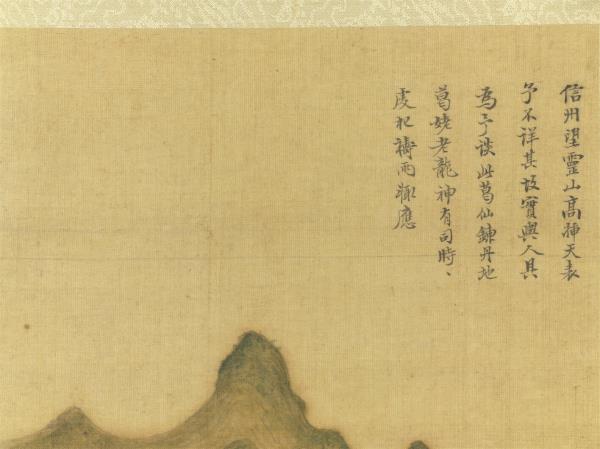 信州望靈山高揷天表
予不詳其故實輿人具
為予談此葛仙鍊丹地
葛姥老龍神有司時、
虔祀禱雨輙應